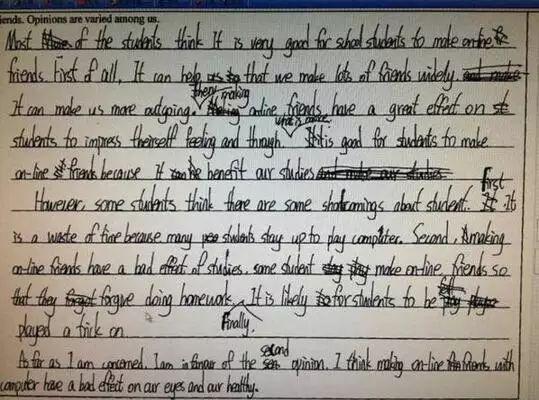 iends. Opinions are varied among us.
Most of the students think It is very good for school students to make on-line
friends. First of all, It can help us that we make lots of friends widely.
It can make us more outgoing. Then, making on-line friends have a great effect on
students to impress theirself feeling and through. What is more, It is good for students to make
on-line friends because It benefit our studies
However, some students think there are some shortcomings about student. First It
is a waste of time because many students stay up to play computer. Second, making
on-line friends have a bad effect of studies, some student make on-line friends so
that they forgive doing homework. Finally. It is likely for students to be
played a trick on
As far as I am concerned, I am in favour of the second opinion. I think making on-line friends with
computer have a bad effect on our eyes and our healthy.